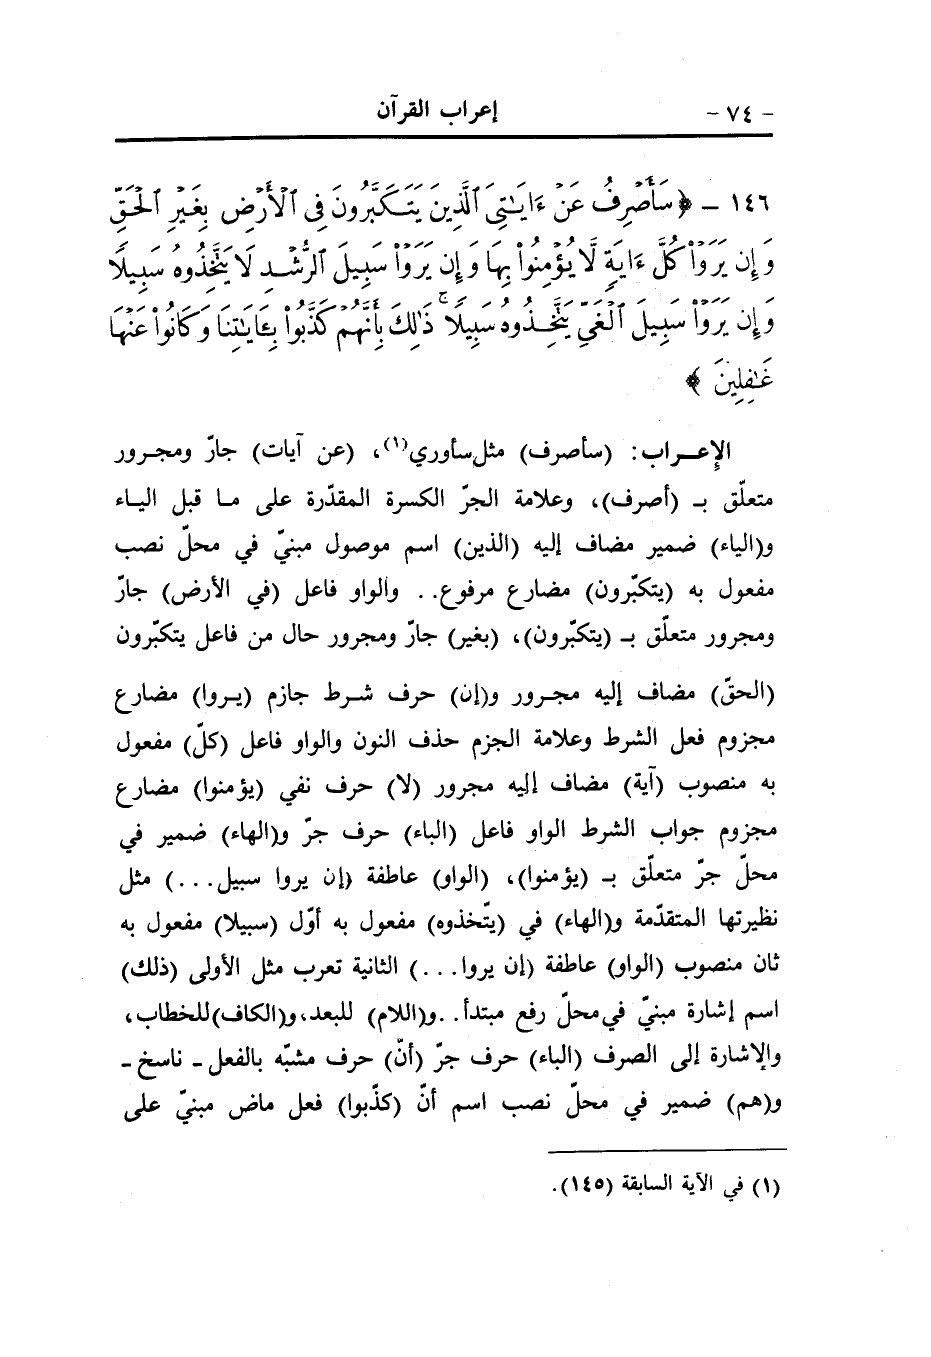 - ٧٤ - إعراب القرآن
١٤٦ - ﴿ سَأَصْرِفُ عَنْ ءَايَـٰتِىَ ٱلَّذِينَ يَتَكَبَّرُونَ فِى ٱلْأَرْضِ بِغَيْرِ ٱلْحَقِّ
وَإِن يَرَوْا۟ كُلَّ ءَايَةٍ لَّا يُؤْمِنُوا۟ بِهَا وَإِن يَرَوْا۟ سَبِيلَ ٱلرُّشْدِ لَا يَتَّخِذُوهُ سَبِيلًا
وَإِن يَرَوْا۟ سَبِيلَ ٱلْغَىِّ يَتَّخِذُوهُ سَبِيلًا ۚ ذَٰلِكَ بِأَنَّهُمْ كَذَّبُوا۟ بِـَٔايَـٰتِنَا وَكَانُوا۟ عَنْهَا
غَـٰفِلِينَ ﴾
الإعـراب: (سأصرف) مثل سأوري(١)، (عن آيات) جارّ ومجرور
متعلّق بـ (أصرف)، وعلامة الجرّ الكسرة المقدّرة على ما قبل الياء
و(الياء) ضمير مضاف إليه (الذين) اسم موصول مبنيّ في محلّ نصب
مفعول به (يتكبّرون) مضارع مرفوع.. والواو فاعل (في الأرض) جارّ
ومجرور متعلّق بـ (يتكبّرون)، (بغير) جارّ ومجرور حال من فاعل يتكبّرون
(الحقّ) مضاف إليه مجرور و(إن) حرف شرط جازم (يروا) مضارع
مجزوم فعل الشرط وعلامة الجزم حذف النون والواو فاعل (كلّ) مفعول
به منصوب (آية) مضاف إليه مجرور (لا) حرف نفي (يؤمنوا) مضارع
مجزوم جواب الشرط الواو فاعل (الباء) حرف جرّ و(الهاء) ضمير في
محلّ جرّ متعلّق بـ (يؤمنوا)، (الواو) عاطفة (إن يروا سبيل...) مثل
نظيرتها المتقدّمة و(الهاء) في (يتّخذوه) مفعول به أوّل (سبيلا) مفعول به
ثان منصوب (الواو) عاطفة (إن يروا...) الثانية تعرب مثل الأولى (ذلك)
اسم إشارة مبنيّ في محلّ رفع مبتدأ.. و(اللام) للبعد، و(الكاف) للخطاب،
والإشارة إلى الصرف (الباء) حرف جرّ (أنّ) حرف مشبّه بالفعل - ناسخ -
و(هم) ضمير في محلّ نصب اسم أنّ (كذّبوا) فعل ماض مبنيّ على
(١) في الآية السابقة (١٤٥).